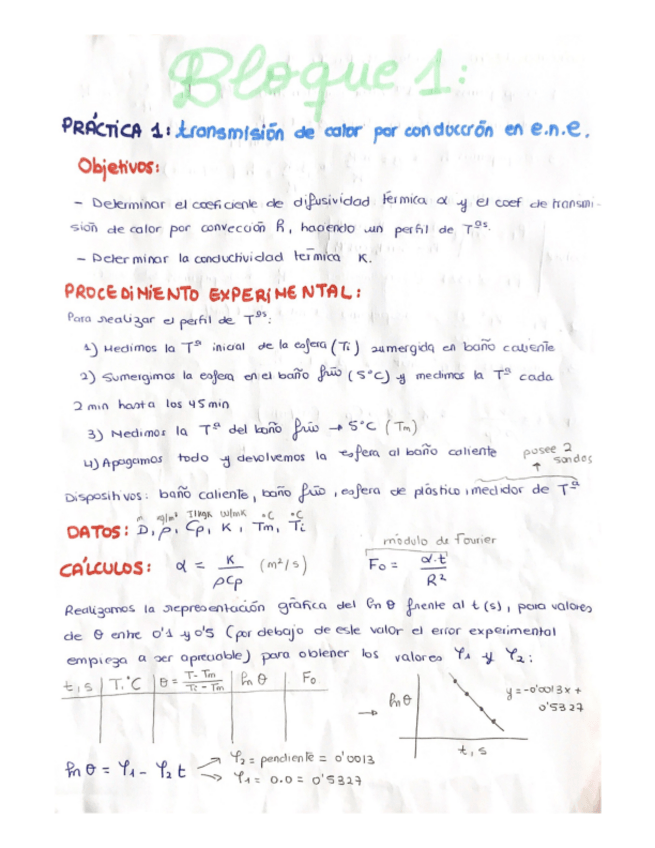 Bloque 1:
PRÁCTICA 1: transmisión de calor por conducción en e.n.e.
Objetivos:
- Determinar el coeficiente de difusividad térmica α y el coef de transmi-
sión de calor por convección h, haciendo un perfil de Tªs.
- Determinar la conductividad térmica K.
PROCEDIMIENTO EXPERIMENTAL:
Para realizar el perfil de Tªs:
1) Medimos la Tª inicial de la esfera (Ti) sumergida en baño caliente
2) Sumergimos la esfera en el baño frío (5°C) y medimos la Tª cada
2 min hasta los 45 min
3) Medimos la Tª del baño frío → 5°C (Tm)
4) Apagamos todo y devolvemos la esfera al baño caliente
posee 2 sondas
Dispositivos: baño caliente, baño frío, esfera de plástico, medidor de Tª
m kg/m³ J/kgK W/mK °C °C
DATOS: D, ρ, Cp, K, Tm, Ti
módulo de Fourier
CÁLCULOS: α = K / ρCp (m²/s) Fo = α·t / R²
Realizamos la representación gráfica del ln θ frente al t (s), para valores
de θ entre 0'1 y 0'5 (por debajo de este valor el error experimental
empieza a ser apreciable) para obtener los valores φ1 y φ2:
t, s | T, °C | θ = T - Tm / Ti - Tm | ln θ | Fo
→ ln θ
t, s
y = -0'0013x +
0'5327
ln θ = φ1 - φ2 t
φ2 = pendiente = 0'0013
φ1 = 0.0 = 0'5327